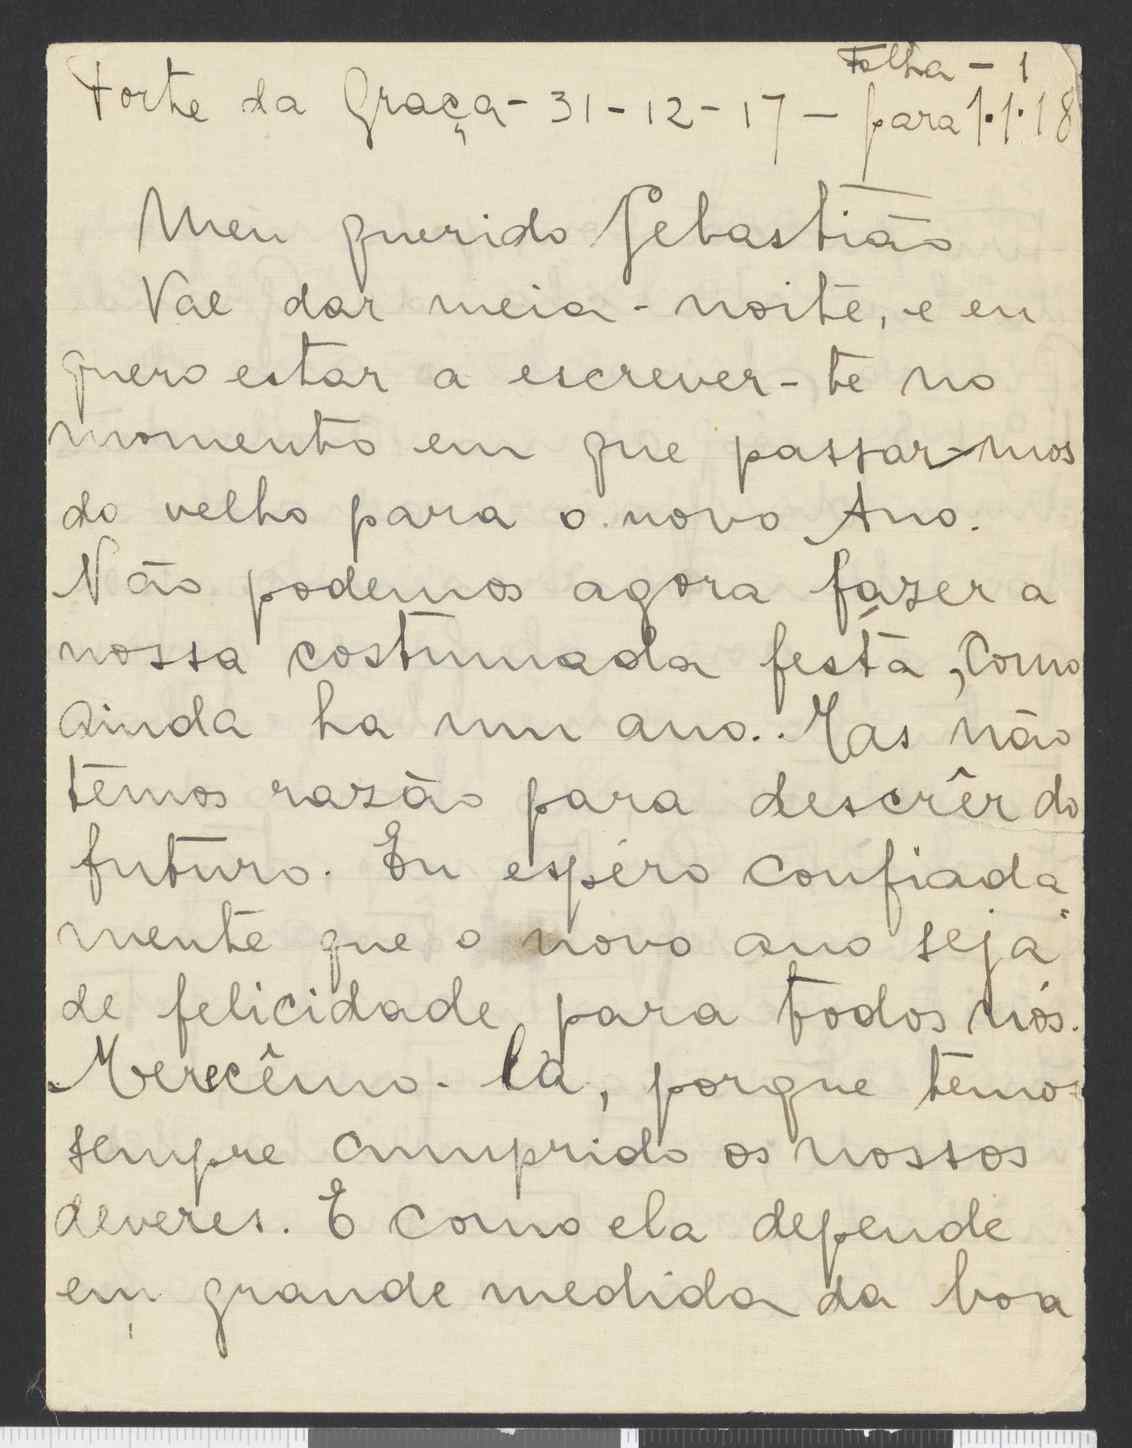 Folha - 1
Forte da Graça - 31 - 12 - 17 - para 1.1.18
Meu querido Sebastião
Vae dar meia - noite, e eu
quero estar a escrever - te no
momento em que passar-mos
do velho para o novo Ano.
Não podemos agora fazer a
nossa costumada festa, como
ainda ha um ano.. Mas não
temos razão para descrêr do
futuro. Eu espéro confiada
mente que o novo ano seja
de felicidade para todos nós.
Merecêmo - la, porque temos
sempre cumprido os nossos
deveres. E como ela depende
em grande medida da boa